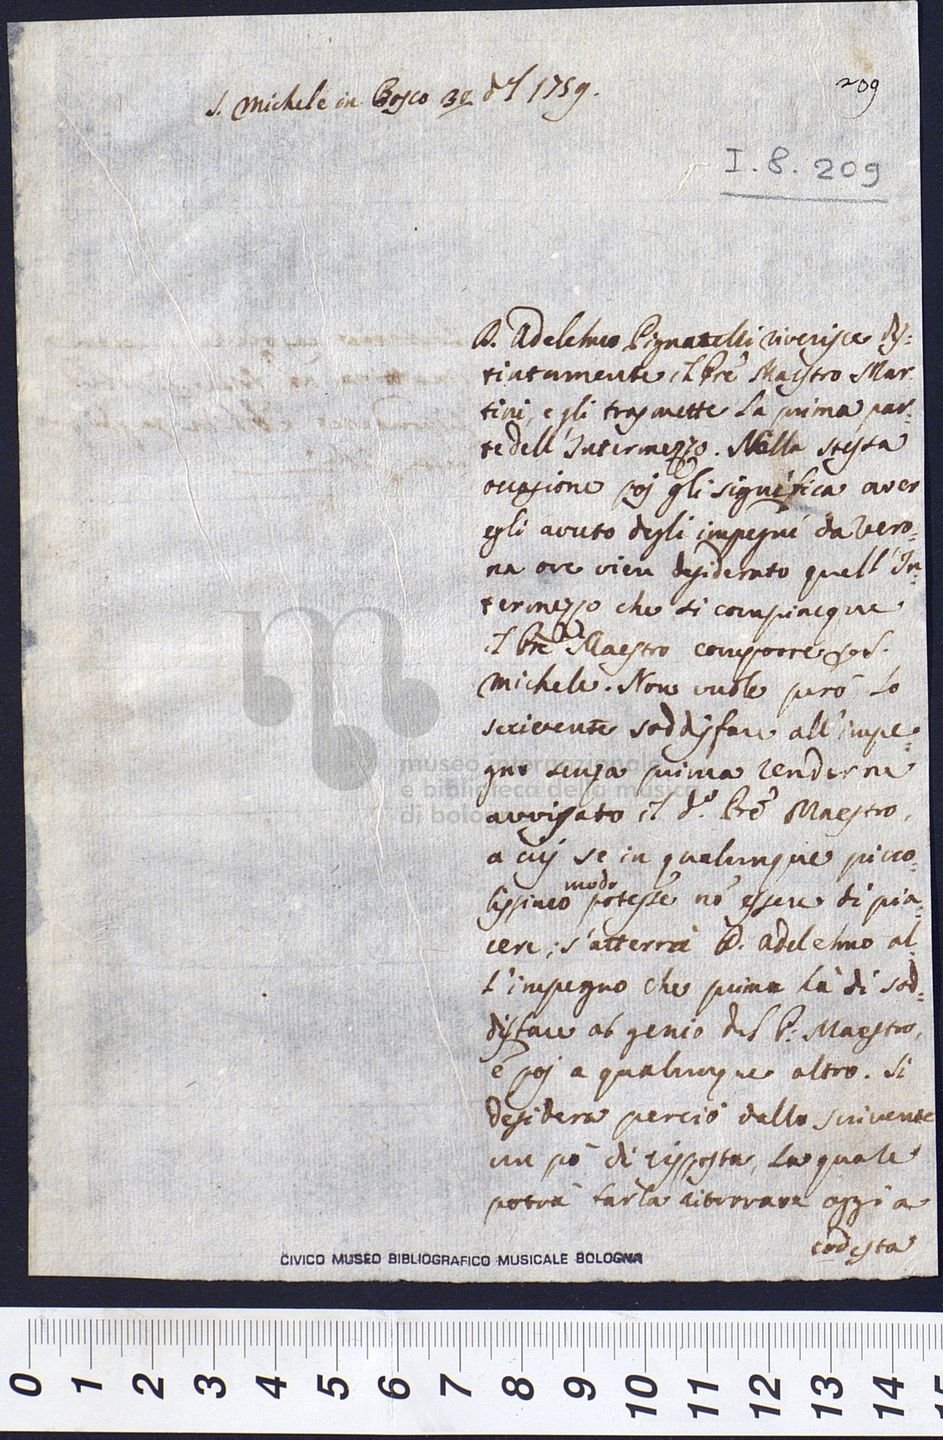 S. Michele in Bosco 32 d'l 1759.
209
I. 8. 209
D. Adelelmo Pignatelli riverisce dis-
tintamente il Prē Maestro Mar-
tini, e gli trasmette la prima par-
te dell'Intermezzo. Nella stessa
occasione poi gli significa aver
egli avuto degli impegni da Vero-
na ove vien desiderato quell'In-
termezzo che si compiacque
il Prē Maestro comporre per S.
Michele. Non vuole però lo
scrivente soddisfare all'impe-
gno senza prima renderne
avvisato il d.o Prē Maestro,
a cui se in qualunque picco-
lissimo modo potesse nō essere di pia-
cere, s'atterrà D. Adelelmo al-
l'impegno che prima hà di sod-
disfare al genio del P. Maestro,
e poi a qualunque altro. Si
desidera perciò dallo scrivente
un pò di risposta, la quale
potrà farla ritornare oggi a
codesta
museo internazionale
e biblioteca della musica
di bologna
CIVICO MUSEO BIBLIOGRAFICO MUSICALE BOLOGNA
0 1 2 3 4 5 6 7 8 9 10 11 12 13 14 15